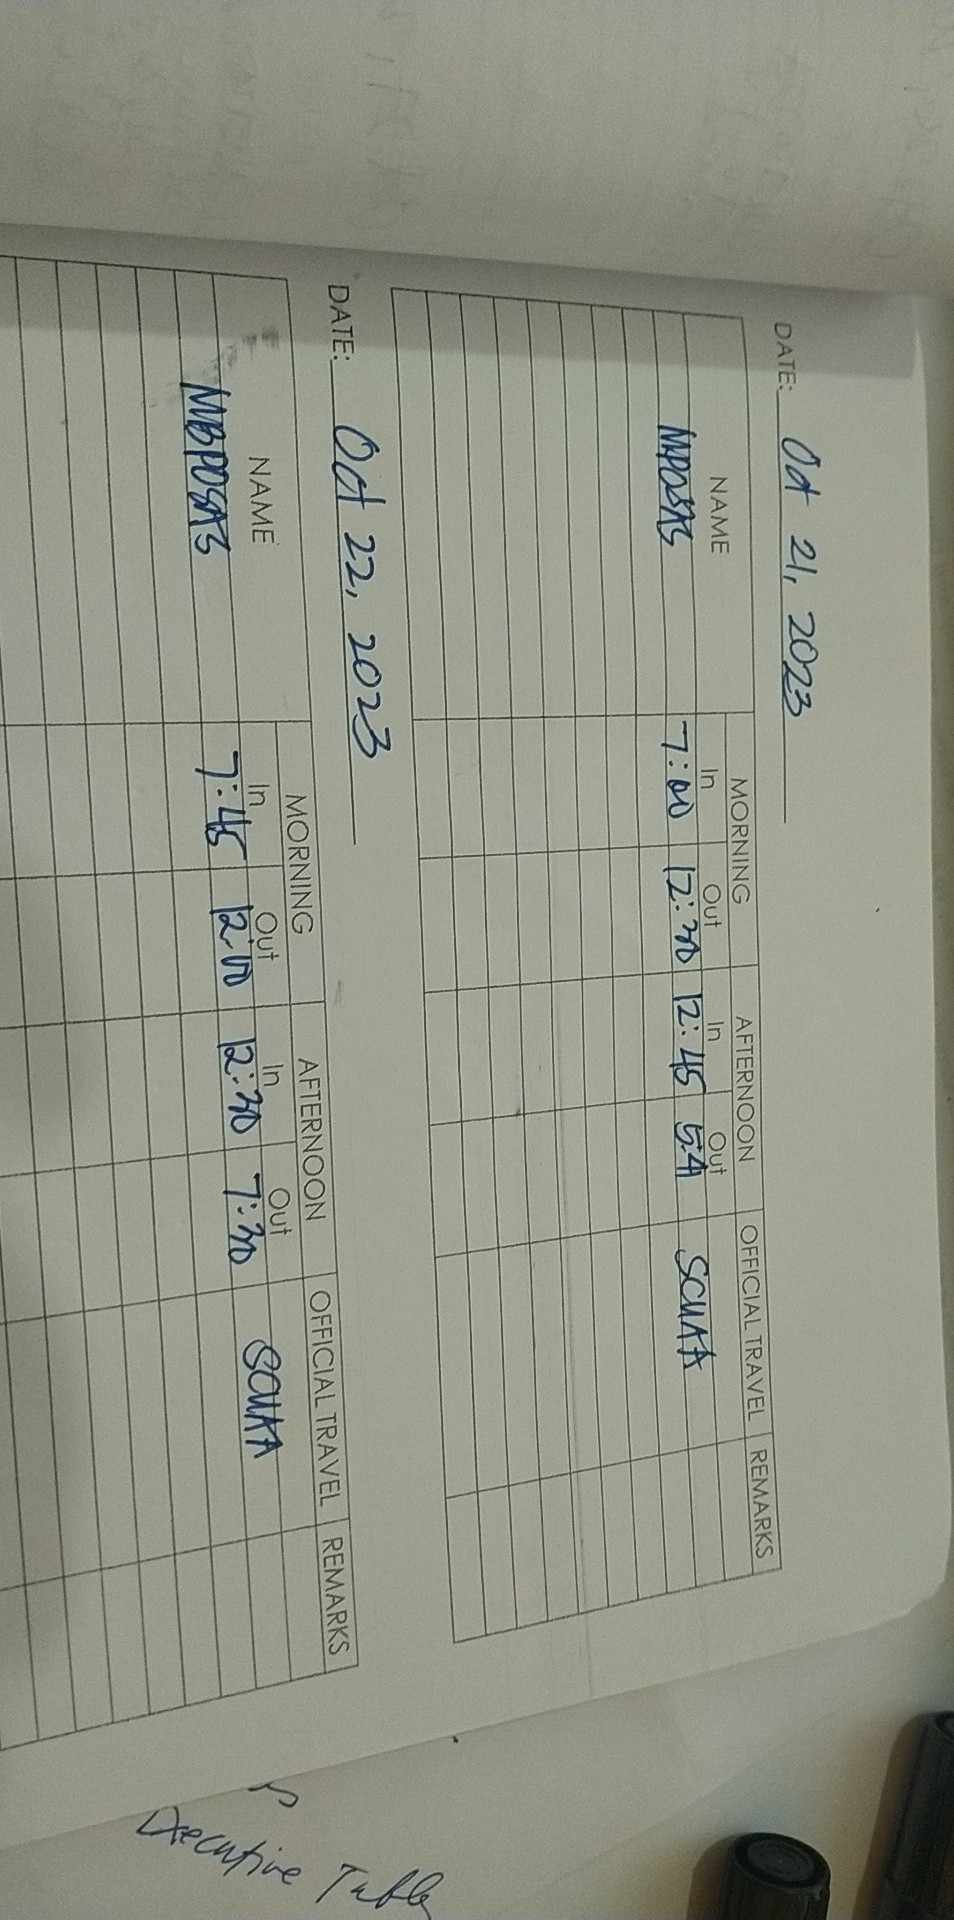 DATE: Oct 21, 2023
NAME MORNING AFTERNOON OFFICIAL TRAVEL REMARKS
In Out In Out
MBPOSAS 7:00 12:30 12:45 5:41 SCUAA
DATE: Oct 22, 2023
NAME MORNING AFTERNOON OFFICIAL TRAVEL REMARKS
In Out In Out
MBPOSAS 7:45 12:00 12:30 7:30 SCUAA
Executive Table